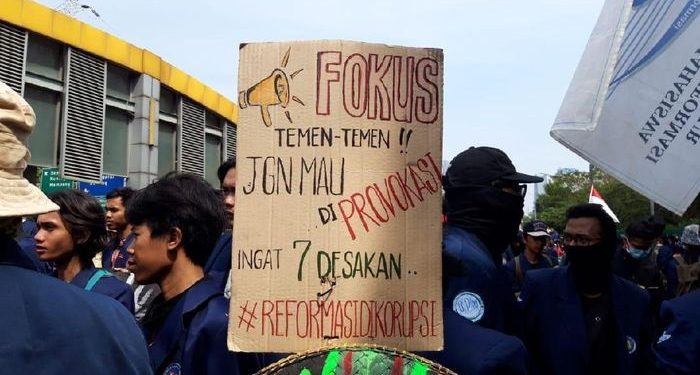 FOKUS
TEMEN-TEMEN !!
JGN MAU
DI PROVOKASI
INGAT 7 DESAKAN..
#REFORMASIDIKORUPSI
MAHASISWA
REFORMASI